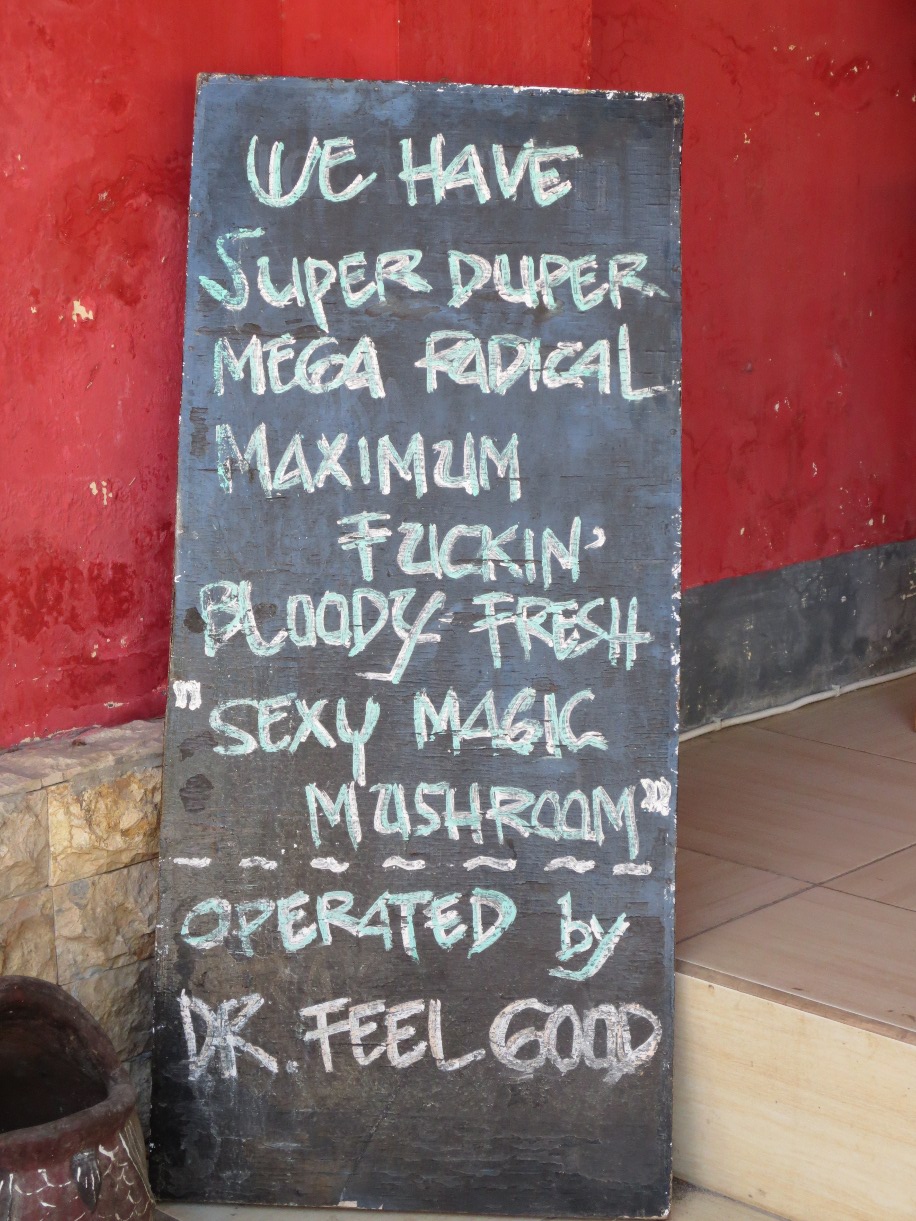 WE HAVE
SUPER DUPER
MEGA RADICAL
MAXIMUM
FUCKIN'
BLOODY FRESH
"SEXY MAGIC
MUSHROOM"
OPERATED by
DR. FEEL GOOD